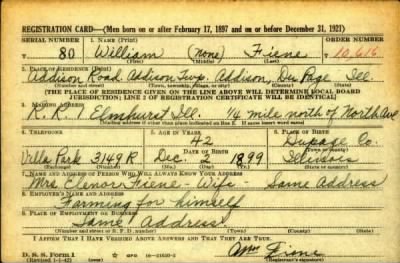 REGISTRATION CARD—(Men born on or after February 17, 1897 and on or before December 31, 1921)
SERIAL NUMBER 1. NAME (Print) ORDER NUMBER
80 William (none) Fiene 10,616
(First) (Middle) (Last)
2. PLACE OF RESIDENCE (Print)
Addison Road Addison Twp. Addison, Du Page Ill
(Number and street) (Town, township, village, or city) (County) (State)
[THE PLACE OF RESIDENCE GIVEN ON THE LINE ABOVE WILL DETERMINE LOCAL BOARD
JURISDICTION; LINE 2 OF REGISTRATION CERTIFICATE WILL BE IDENTICAL]
3. MAILING ADDRESS
R.R. 1 Elmhurst Ill. 1/4 mile north of North Ave
(Mailing address if other than place indicated on line 2. If same insert word same)
4. TELEPHONE 5. AGE IN YEARS 6. PLACE OF BIRTH
42 Dupage Co.
DATE OF BIRTH (Town or county)
Villa Park 3149R Dec. 2 1899 Illinois
(Exchange) (Number) (Mo.) (Day) (Yr.) (State or country)
7. NAME AND ADDRESS OF PERSON WHO WILL ALWAYS KNOW YOUR ADDRESS
Mrs. Lenor Fiene - Wife - Same Address
8. EMPLOYER'S NAME AND ADDRESS
Farming for himself
9. PLACE OF EMPLOYMENT OR BUSINESS
Same Address
(Number and street or R. F. D. number) (Town) (County) (State)
I AFFIRM THAT I HAVE VERIFIED ABOVE ANSWERS AND THAT THEY ARE TRUE.
D. S. S. Form 1 GPO Wm Fiene
(Revised 1-1-42) (over) (Registrant's signature)